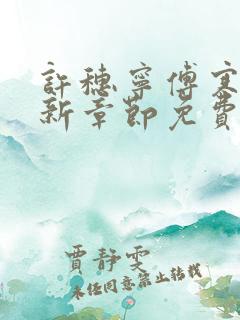 許穗寧傅寒
新章節免費
賈靜雯
未经同意禁止转载